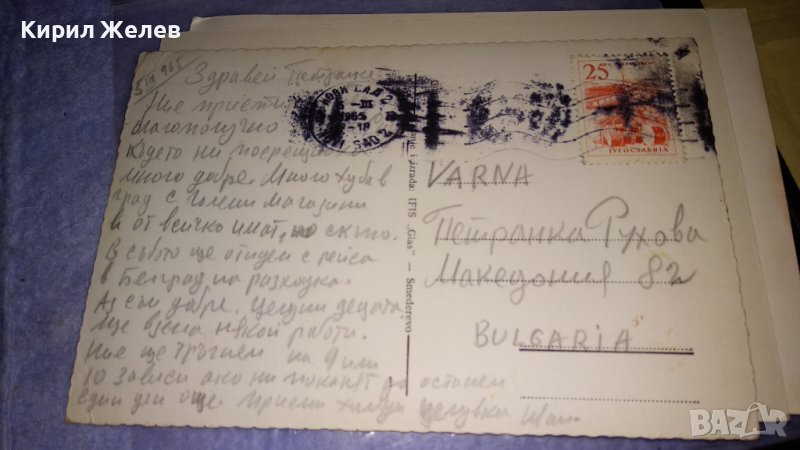 Кирил Желев
Здравей Петранке
Ние присти
благополучно
където ни посрещ
много добре. Много хубав
град с големи магазини
и от всичко имат, но скъпо.
В събота ще отидем с рейса
в Белград на разходка.
Аз съм добре. Целуни децата
ще взема някой работи.
Ние ще тръгнем на 9 или
10 зависи ако ни поканят да останем
един ден още. Приеми хиляди целувки
НОВИ САД 2
1965
NOVI SAD 2
25
JUGOSLAVIJA
izrada: IFIS „Glas" — Smederevo
VARNA
Петранка Рухова
Македония 82
BULGARIA
BAZAR